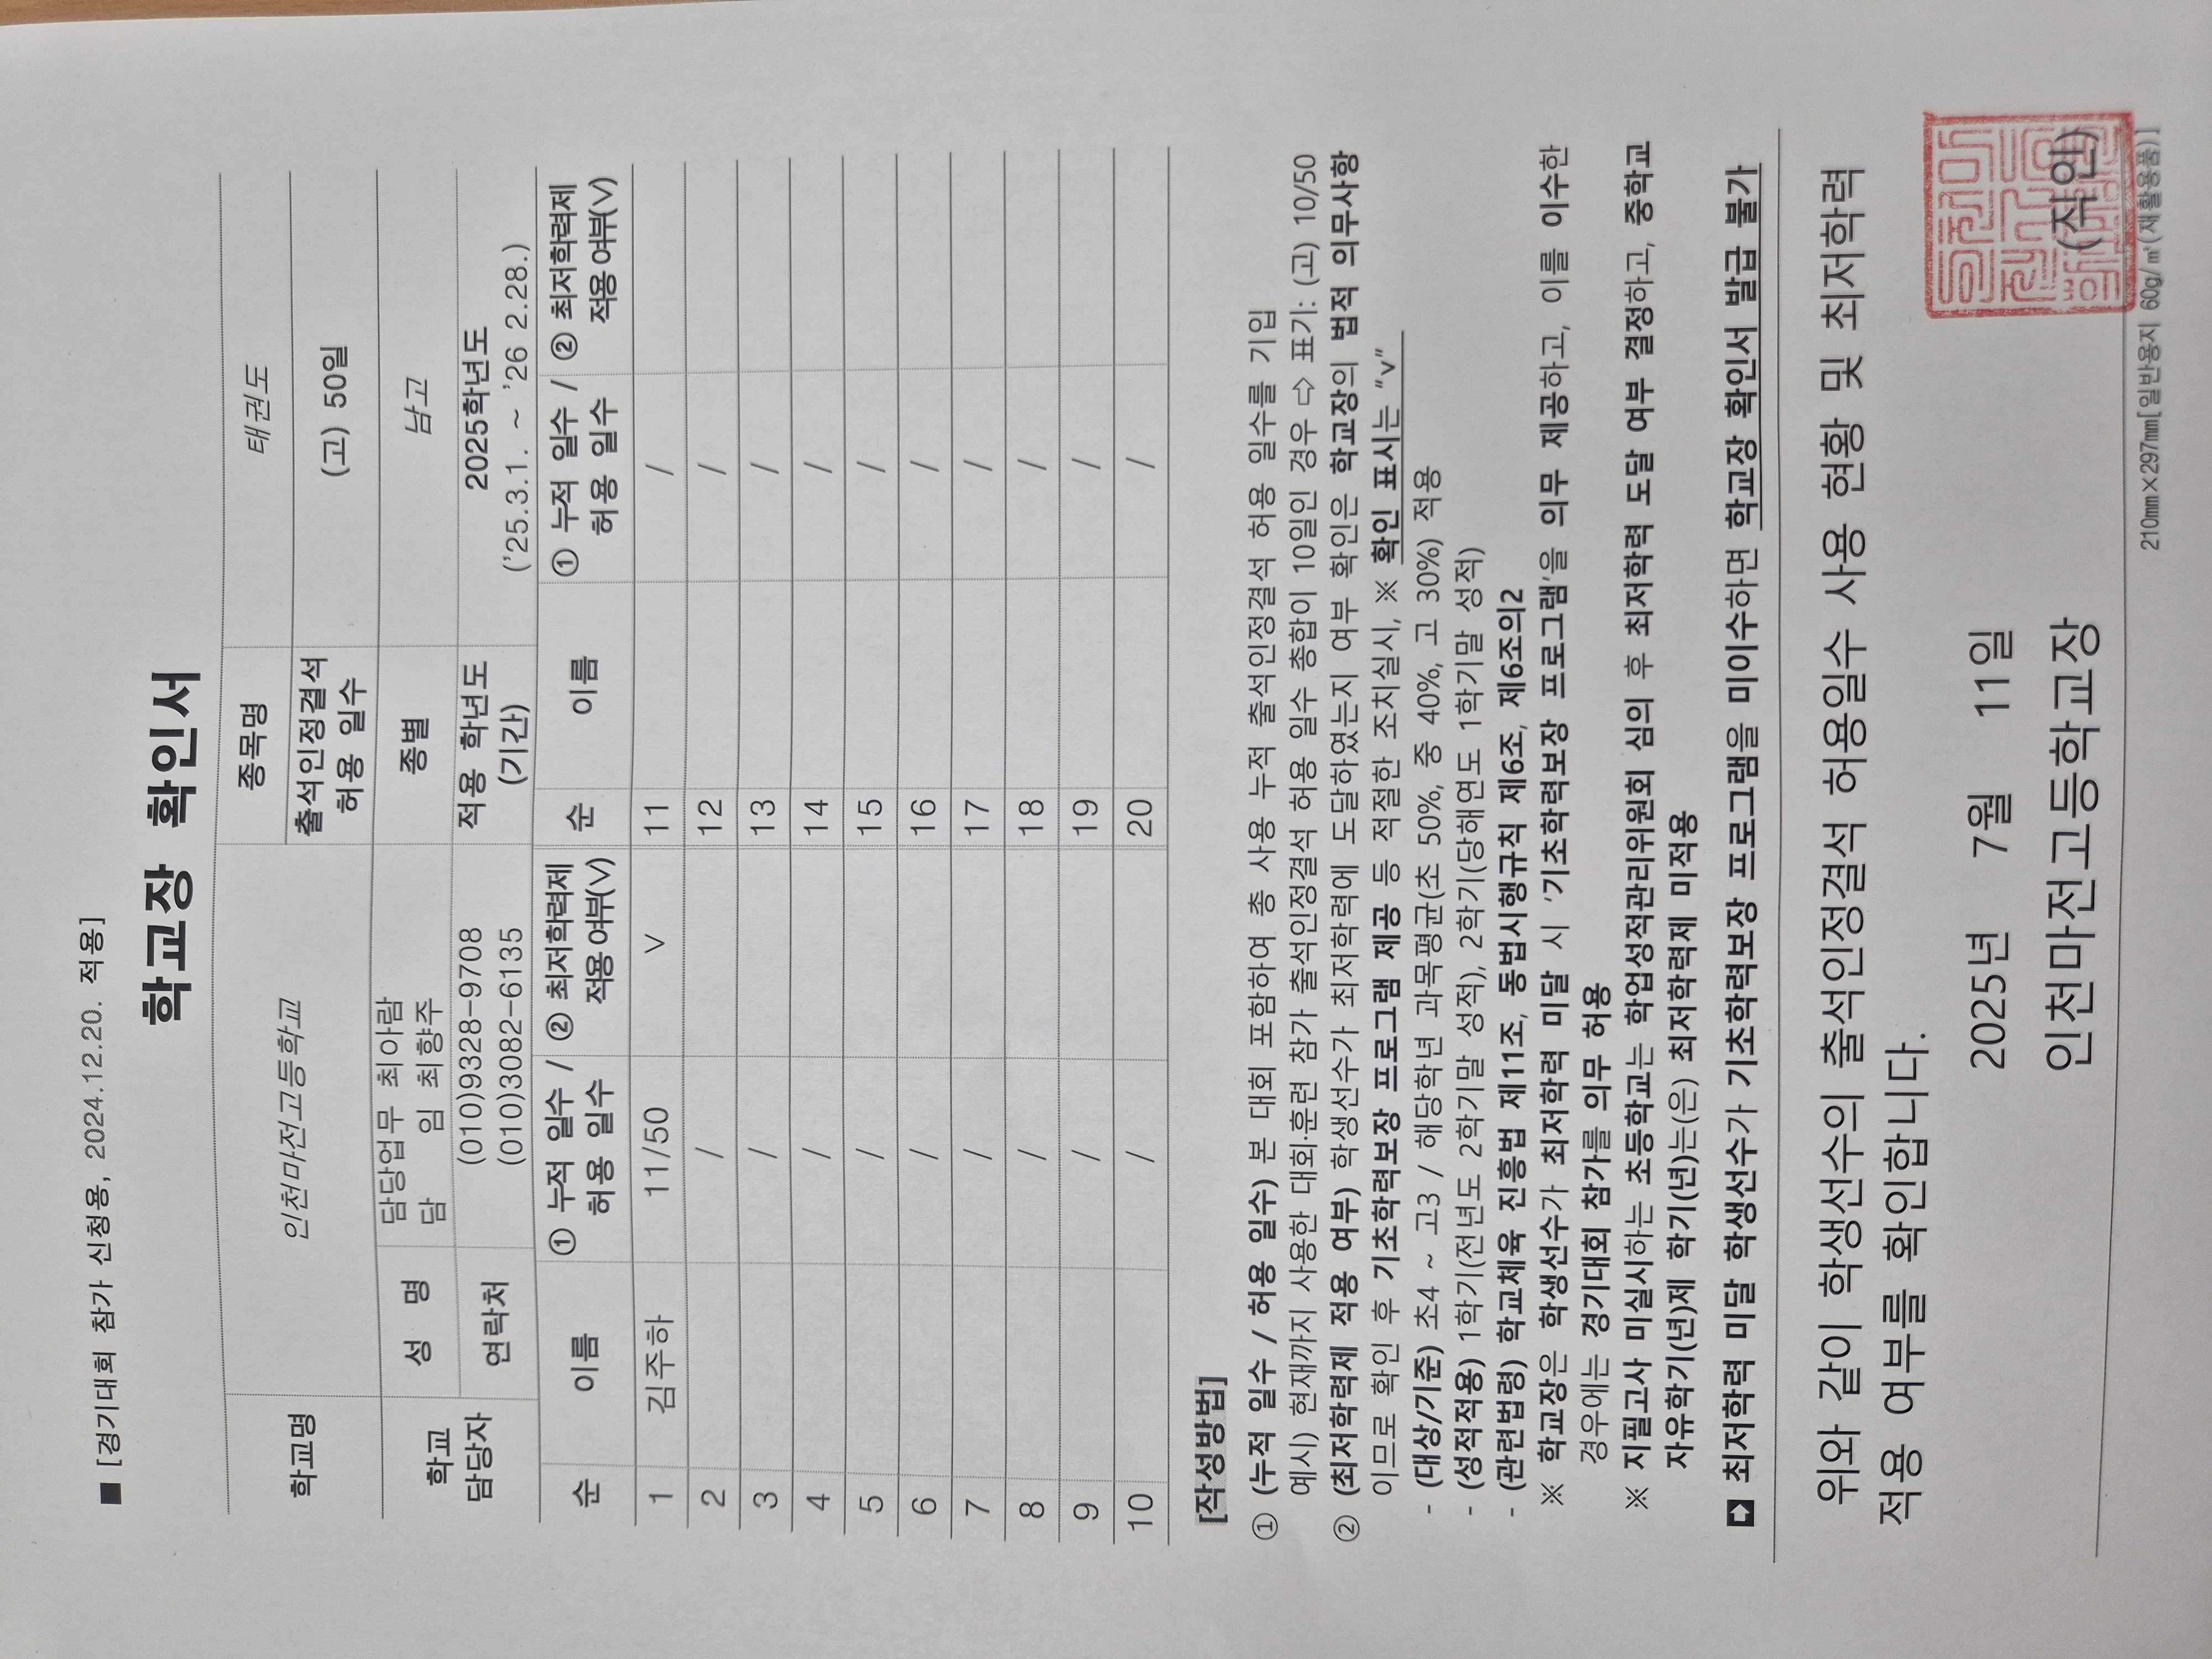 ■ [경기대회 참가 신청용, 2024.12.20. 적용]
학교장 확인서
학교명 인천마전고등학교 종목명 태권도
출석인정결석 허용 일수 (고) 50일
학교 담당자 성 명 담당업무 최아람 종별 남고
담 임 최향주
연락처 (010)9328-9708 적용 학년도 2025학년도
(010)3082-6135 (기간) ('25.3.1. ~ '26 2.28.)
순 이름 ① 누적 일수 / 허용 일수 ② 최저학력제 적용여부(V) 순 이름 ① 누적 일수 / 허용 일수 ② 최저학력제 적용여부(V)
1 김주하 11/50 V 11 /
2 / 12 /
3 / 13 /
4 / 14 /
5 / 15 /
6 / 16 /
7 / 17 /
8 / 18 /
9 / 19 /
10 / 20 /
[작성방법]
① (누적 일수 / 허용 일수) 본 대회 포함하여 총 사용 누적 출석인정결석 허용 일수를 기입
예시) 현재까지 사용한 대회·훈련 참가 출석인정결석 허용 일수 총합이 10일인 경우 ⇨ 표기: (고) 10/50
② (최저학력제 적용 여부) 학생선수가 최저학력에 도달하였는지 여부 확인은 학교장의 법적 의무사항
이므로 확인 후 기초학력보장 프로그램 제공 등 적절한 조치실시, ※ 확인 표시는 “v”
- (대상/기준) 초4 ~ 고3 / 해당학년 과목평균(초 50%, 중 40%, 고 30%) 적용
- (성적적용) 1학기(전년도 2학기말 성적), 2학기(당해연도 1학기말 성적)
- (관련법령) 학교체육 진흥법 제11조, 동법시행규칙 제6조, 제6조의2
※ 학교장은 학생선수가 최저학력 미달 시 '기초학력보장 프로그램'을 의무 제공하고, 이를 이수한
경우에는 경기대회 참가를 의무 허용
※ 지필고사 미실시하는 초등학교는 학업성적관리위원회 심의 후 최저학력 도달 여부 결정하고, 중학교
자유학기(년)제 학기(년)는(은) 최저학력제 미적용
최저학력 미달 학생선수가 기초학력보장 프로그램을 미이수하면 학교장 확인서 발급 불가
위와 같이 학생선수의 출석인정결석 허용일수 사용 현황 및 최저학력
적용 여부를 확인합니다.
2025년 7월 11일
인천마전고등학교장 (직인)
210㎜×297㎜[일반용지 60g/㎡(재활용품)]